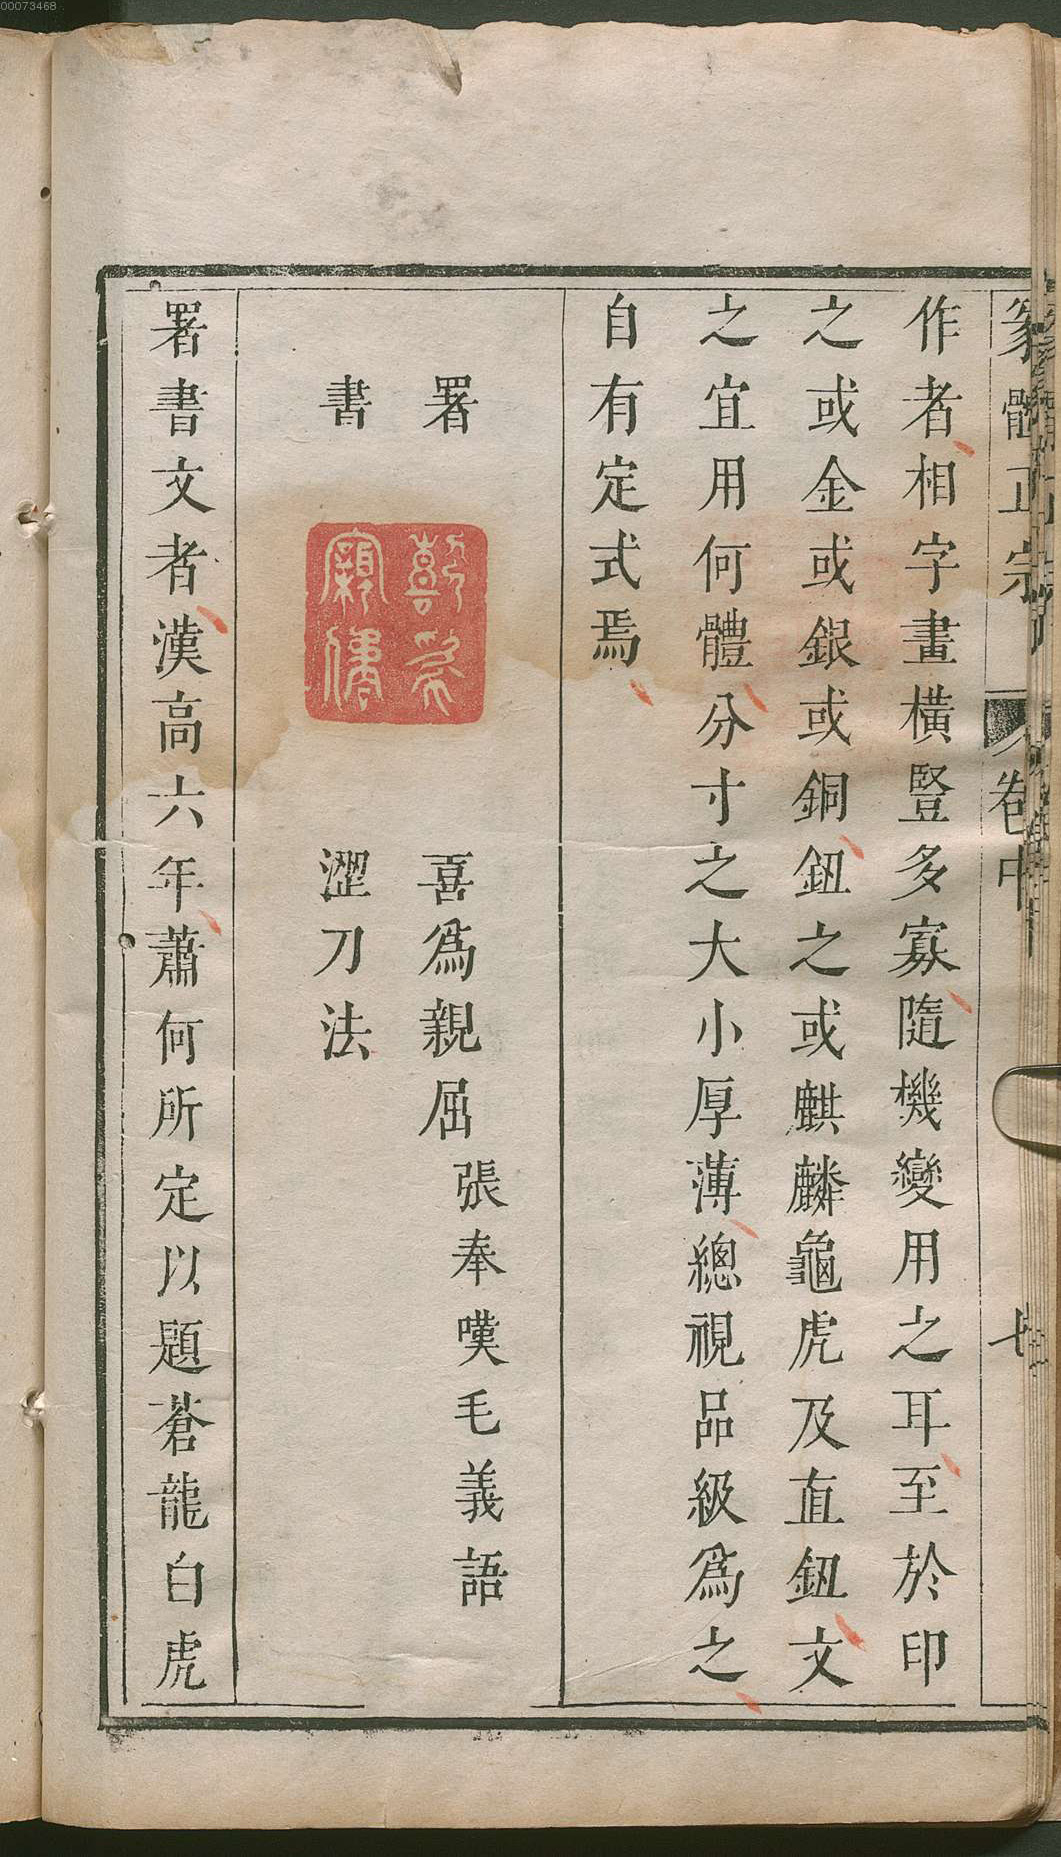 00073468
篆體正宗 卷中 七
作者相字畫橫豎多寡隨機變用之耳至於印
之或金或銀或銅鈕之或麒麟龜虎及直鈕文
之宜用何體分寸之大小厚薄總視品級爲之
自有定式焉
署書
喜爲親屈
張奉嘆毛義語
澀刀法
署書文者漢高六年蕭何所定以題蒼龍白虎